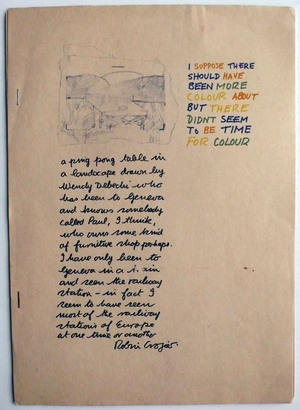 I SUPPOSE THERE
SHOULD HAVE
BEEN MORE
COLOUR ABOUT
BUT THERE
DIDNT SEEM
TO BE TIME
FOR COLOUR
a ping pong table in
a landscape drawn by
Wendy who
has been to Geneva
and knows somebody
called Paul, I think,
who owns some kind
of furniture shop perhaps.
I have only been to
Geneva in a
and seen the railway
station - in fact I
seem to have seen
most of the railway
stations of Europe
at one time or another
Robin